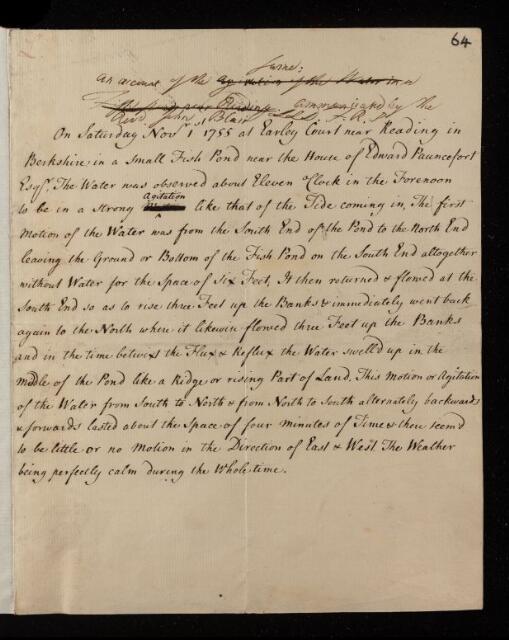 64
same;
an account of the agitation of the Water in a
Fish Pond near Reading communicated by the
Revd. John Blair LL.D. F.R.S.
On Saturday Novr. 1 1755 at Earley Court near Reading in
Berkshire, in a Small Fish Pond near the House of Edward Pauncefort
Esqr. The Water was observed about Eleven o'Clock in the Forenoon
Agitation
to be in a strong like that of the Tide coming in, The first
Motion of the Water was from the South End of the Pond to the North End
leaving the Ground or Bottom of the Fish Pond on the South End altogether
without Water for the Space of Six Feet, It then returned & flowed at the
South End so as to rise three Feet up the Banks & immediately went back
again to the North where it likewise flowed three Feet up the Banks
and in the time betwixt the Flux & Reflux the Water swell'd up in the
middle of the Pond like a Ridge or rising Part of Land. This Motion or Agitation
of the Water from South to North & from North to South alternately backwards
& forwards lasted about the Space of four minutes of Time & there seem'd
to be little or no Motion in the Direction of East & West. The Weather
being perfectly calm during the Whole time.